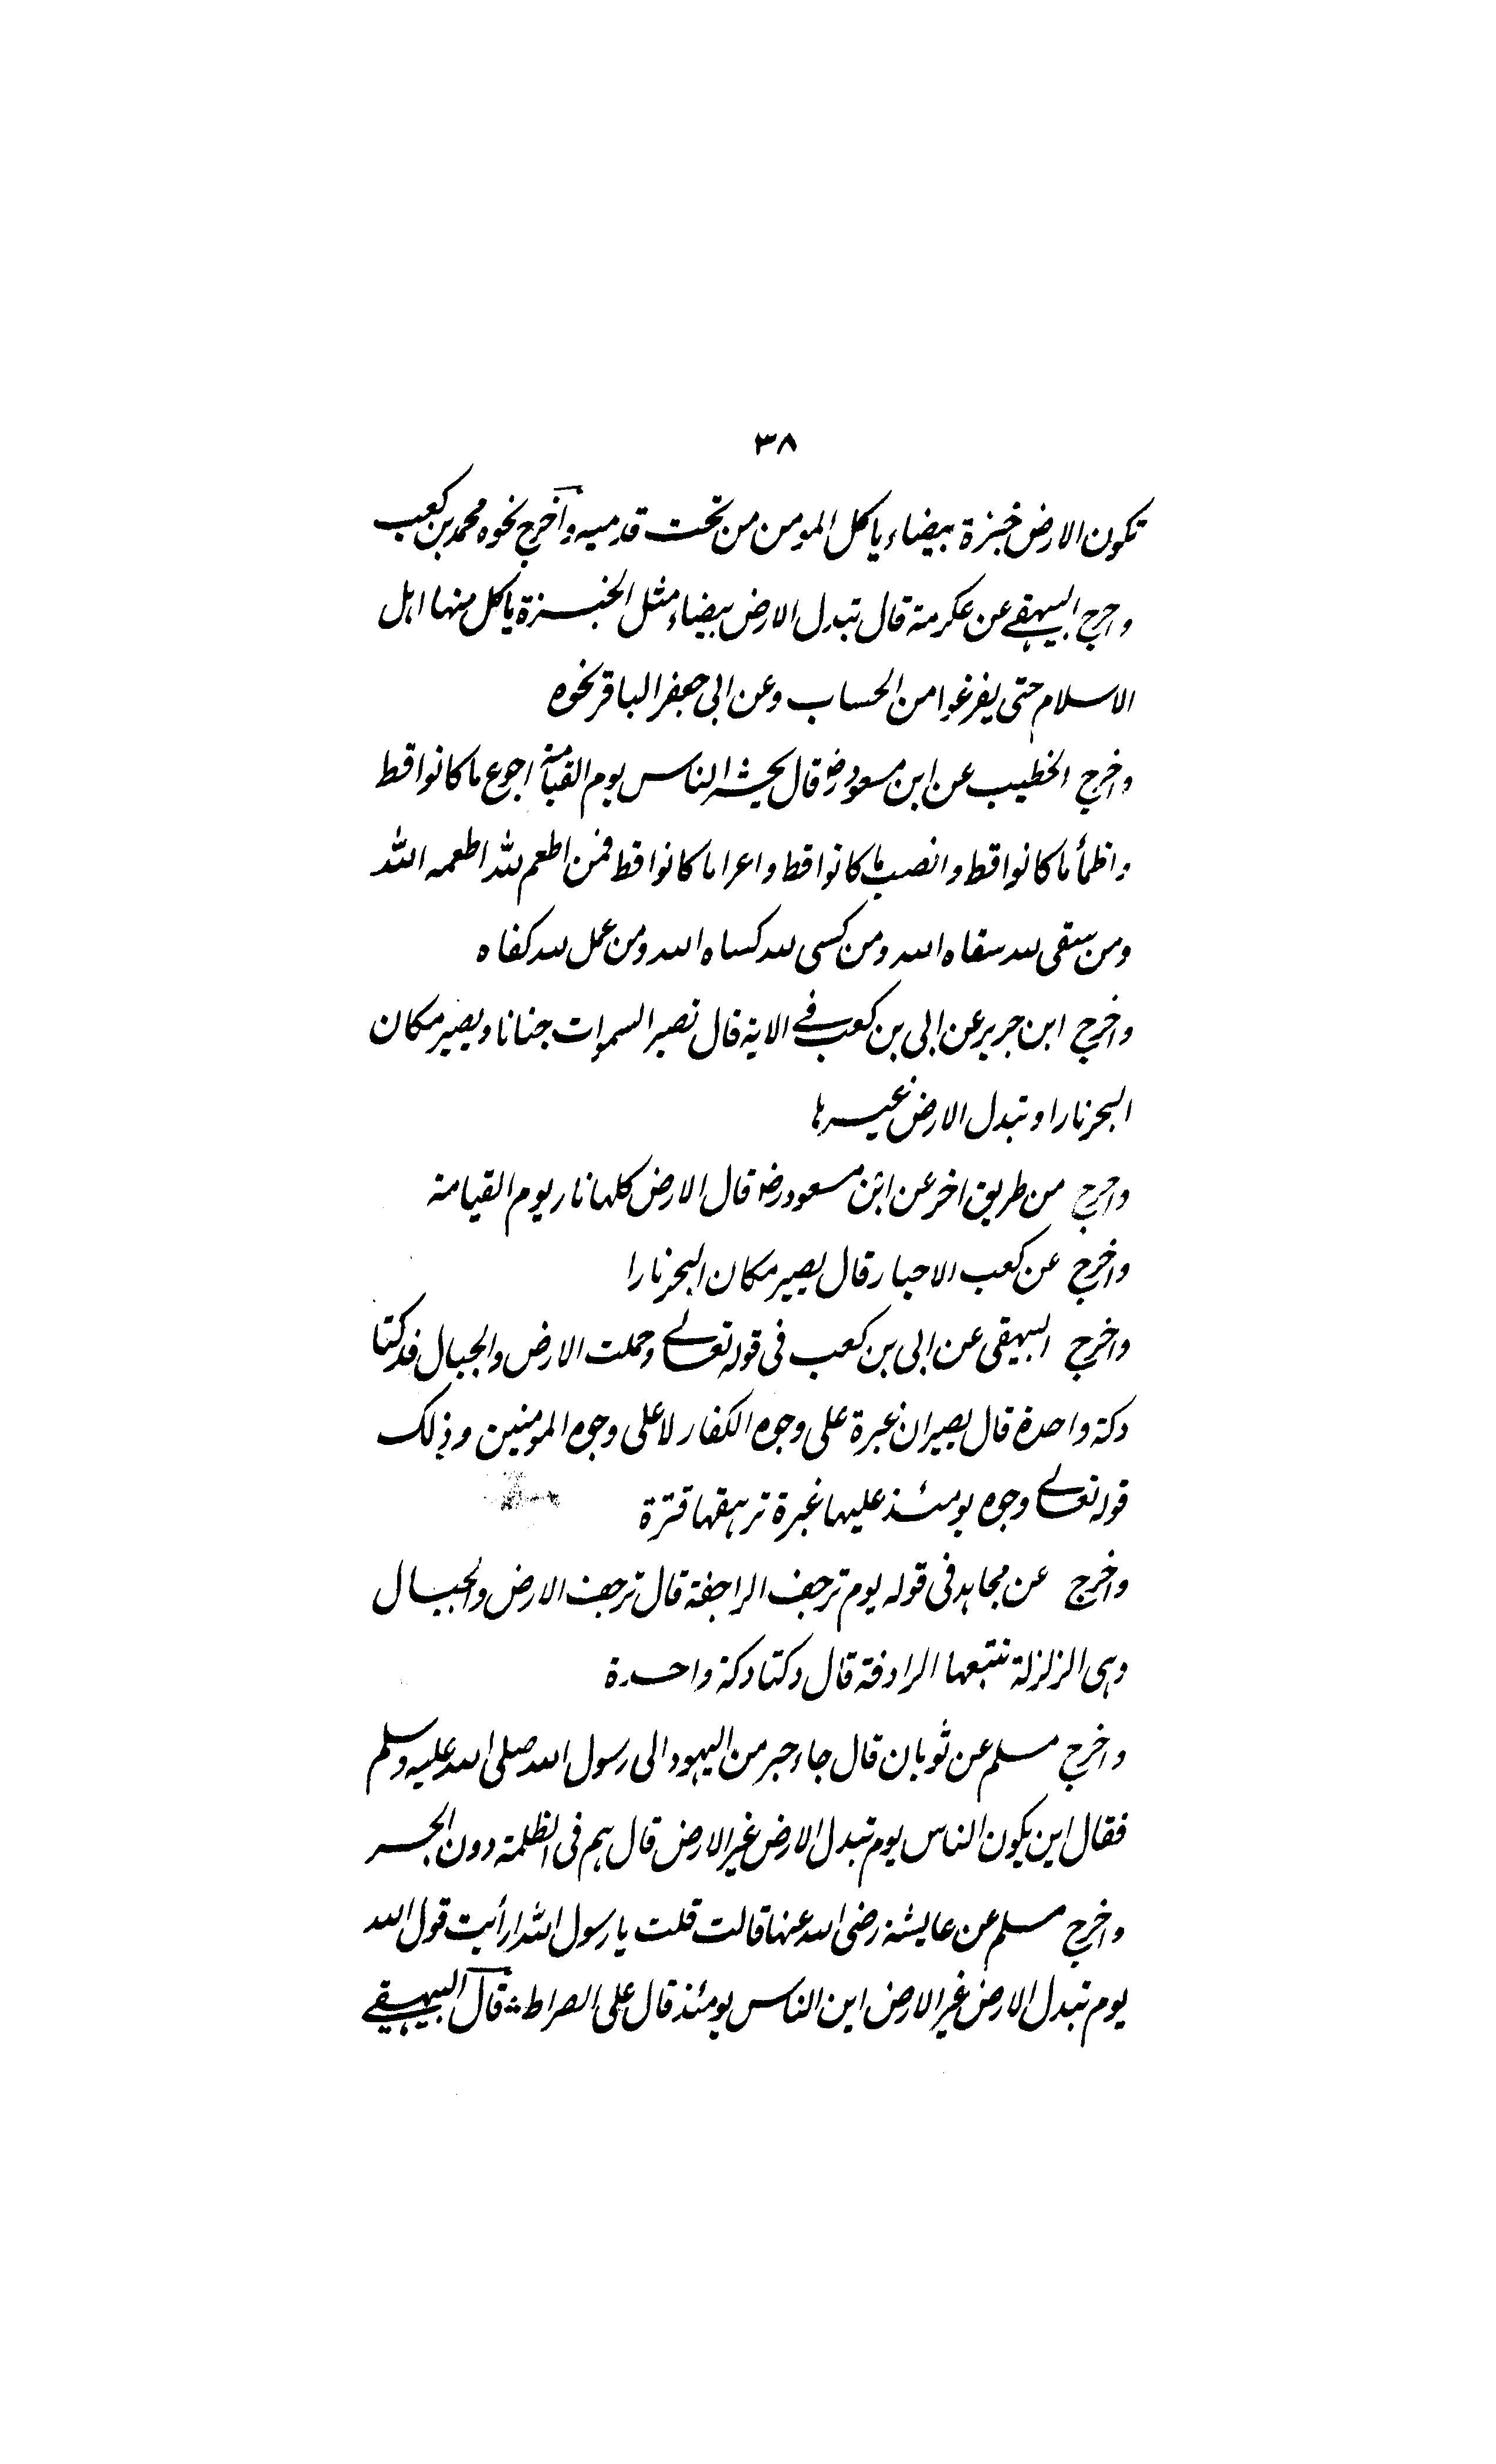 ٣٨
تكون الارض خبزة بيضاء ياكل المومن من تحت قدميه واخرج نحوه محمد بن كعب
واخرج البيهقي عن عكرمة قال تبدل الارض بيضاء مثل الخبزة ياكل منها اهل
الاسلام حتى يفرغوا من الحساب وعن ابى جعفر الباقر نحوه
واخرج الخطيب عن ابن مسعود رض قال يحشر الناس يوم القيامة اجوع ما كانوا قط
واظمأ ما كانوا قط وانصب ما كانوا قط واعرا ما كانوا قط فمن اطعم لله اطعمه الله
ومن سقى لله سقاه الله ومن كسى لله كساه الله ومن عمل لله كفاه
واخرج ابن جرير عن ابى بن كعب في الاية قال تصير السموات جنانا ويصير مكان
البحر نارا وتبدل الارض غيرها
واخرج من طريق اخر عن ابن مسعود رض قال الارض كلها نار يوم القيامة
واخرج عن كعب الاحبار قال يصير مكان البحر نارا
واخرج البيهقى عن ابى بن كعب فى قوله تعالے وحملت الارض والجبال فدكتا
دكة واحدة قال يصيران غبرة على وجوه الكفار لا على وجوه المومنين وذلك
قوله تعالے وجوه يومئذ عليها غبرة ترهقها قترة
واخرج عن مجاهد فى قوله يوم ترجف الراجفة قال ترجف الارض والجبال
وهى الزلزلة تتبعها الرادفة قال دكتا دكة واحدة
واخرج مسلم عن ثوبان قال جاء حبر من اليهود الى رسول الله صلى الله عليه وسلم
فقال اين يكون الناس يوم تبدل الارض غير الارض قال هم فى الظلمة دون الجسر
واخرج مسلم عن عايشة رضى الله عنها قالت قلت يا رسول الله ارأيت قول الله
يوم تبدل الارض غير الارض اين الناس يومئذ قال على الصراط قال البيهقے